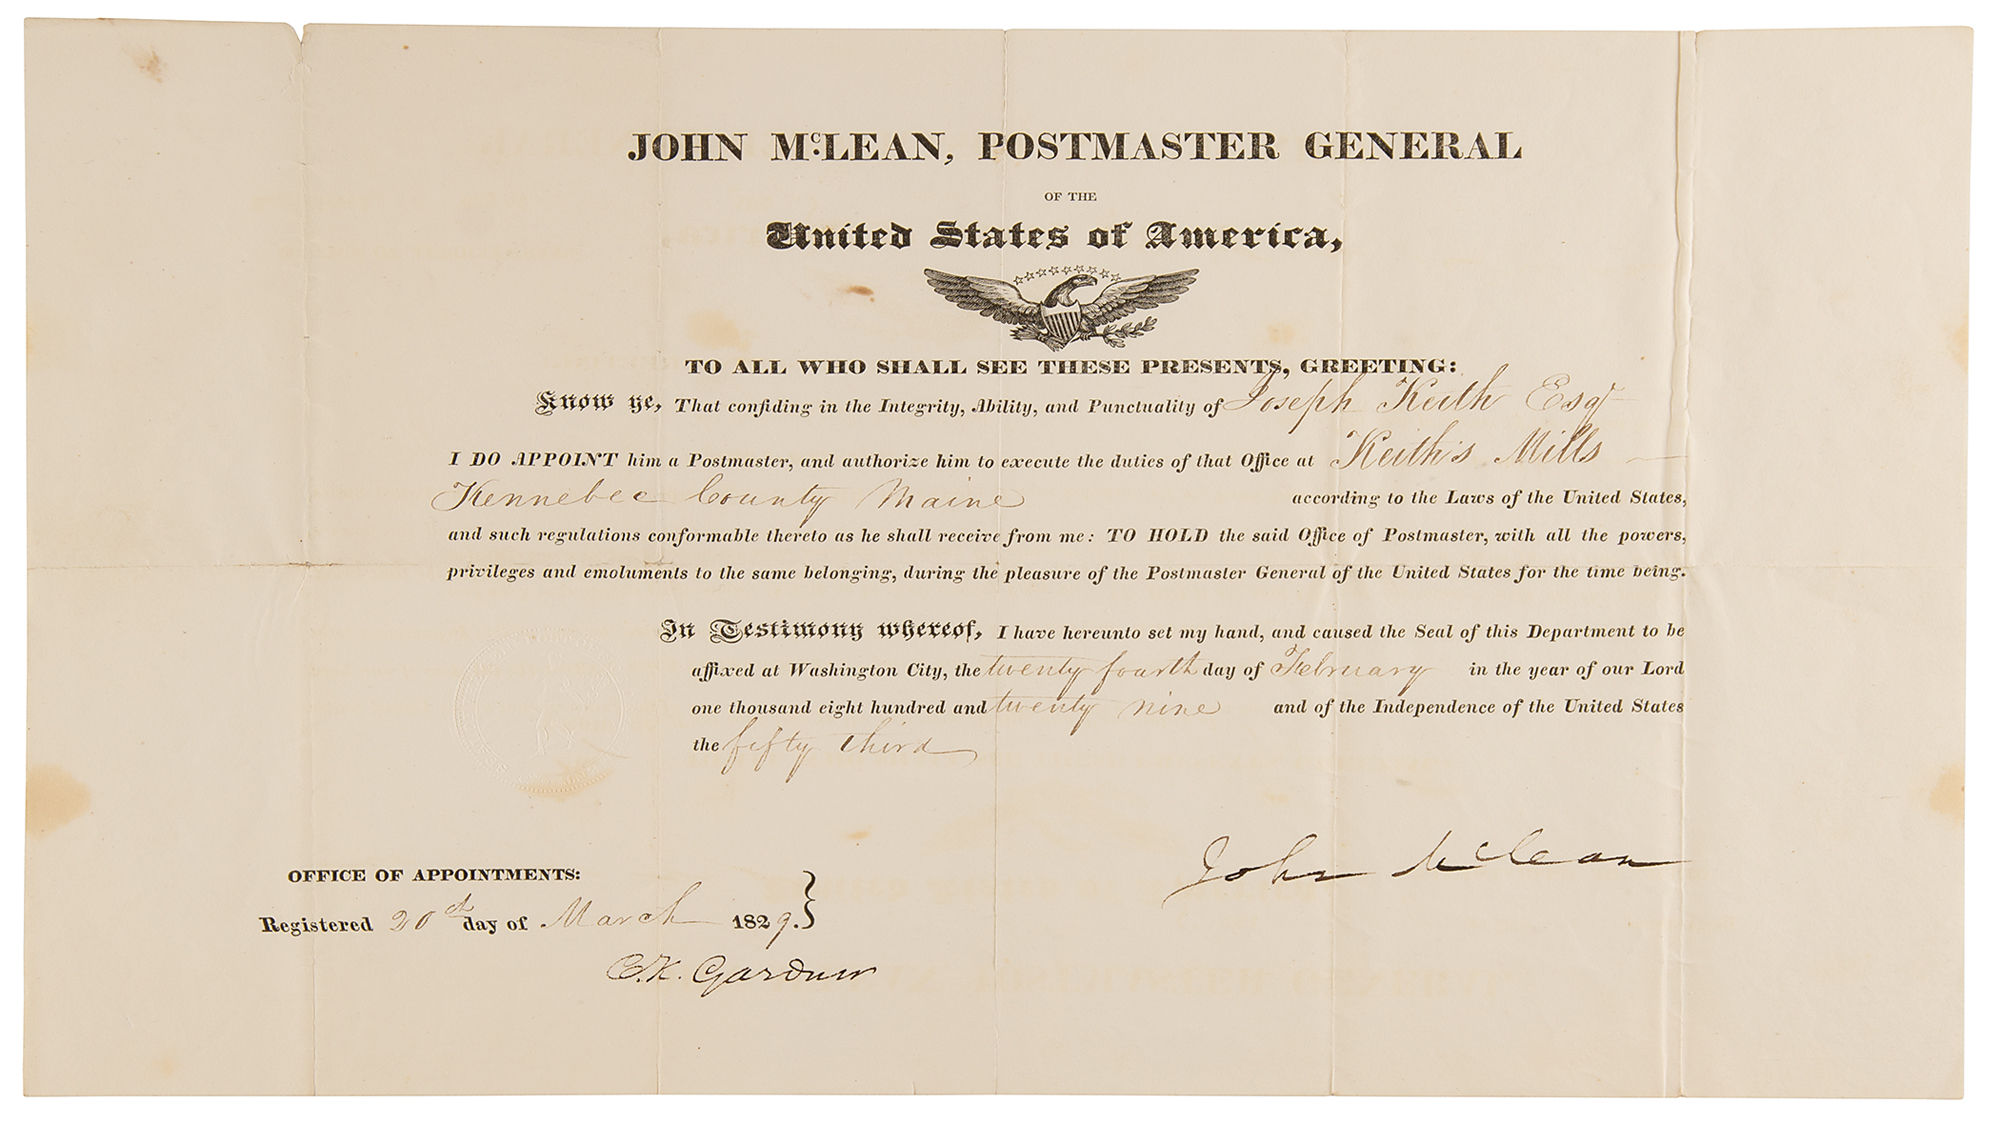 JOHN McLEAN, POSTMASTER GENERAL
OF THE
United States of America,
TO ALL WHO SHALL SEE THESE PRESENTS, GREETING:
Know ye, That confiding in the Integrity, Ability, and Punctuality of Joseph Keith Esqr
I DO APPOINT him a Postmaster, and authorize him to execute the duties of that Office at Keith's Mills
Kennebec County Maine according to the Laws of the United States,
and such regulations conformable thereto as he shall receive from me: TO HOLD the said Office of Postmaster, with all the powers,
privileges and emoluments to the same belonging, during the pleasure of the Postmaster General of the United States for the time being.
In Testimony whereof, I have hereunto set my hand, and caused the Seal of this Department to be
affixed at Washington City, the twenty fourth day of February in the year of our Lord
one thousand eight hundred and twenty nine and of the Independence of the United States
the fifty third
John McLean
OFFICE OF APPOINTMENTS:
Registered 20th day of March 1829.
C.K. Gardner